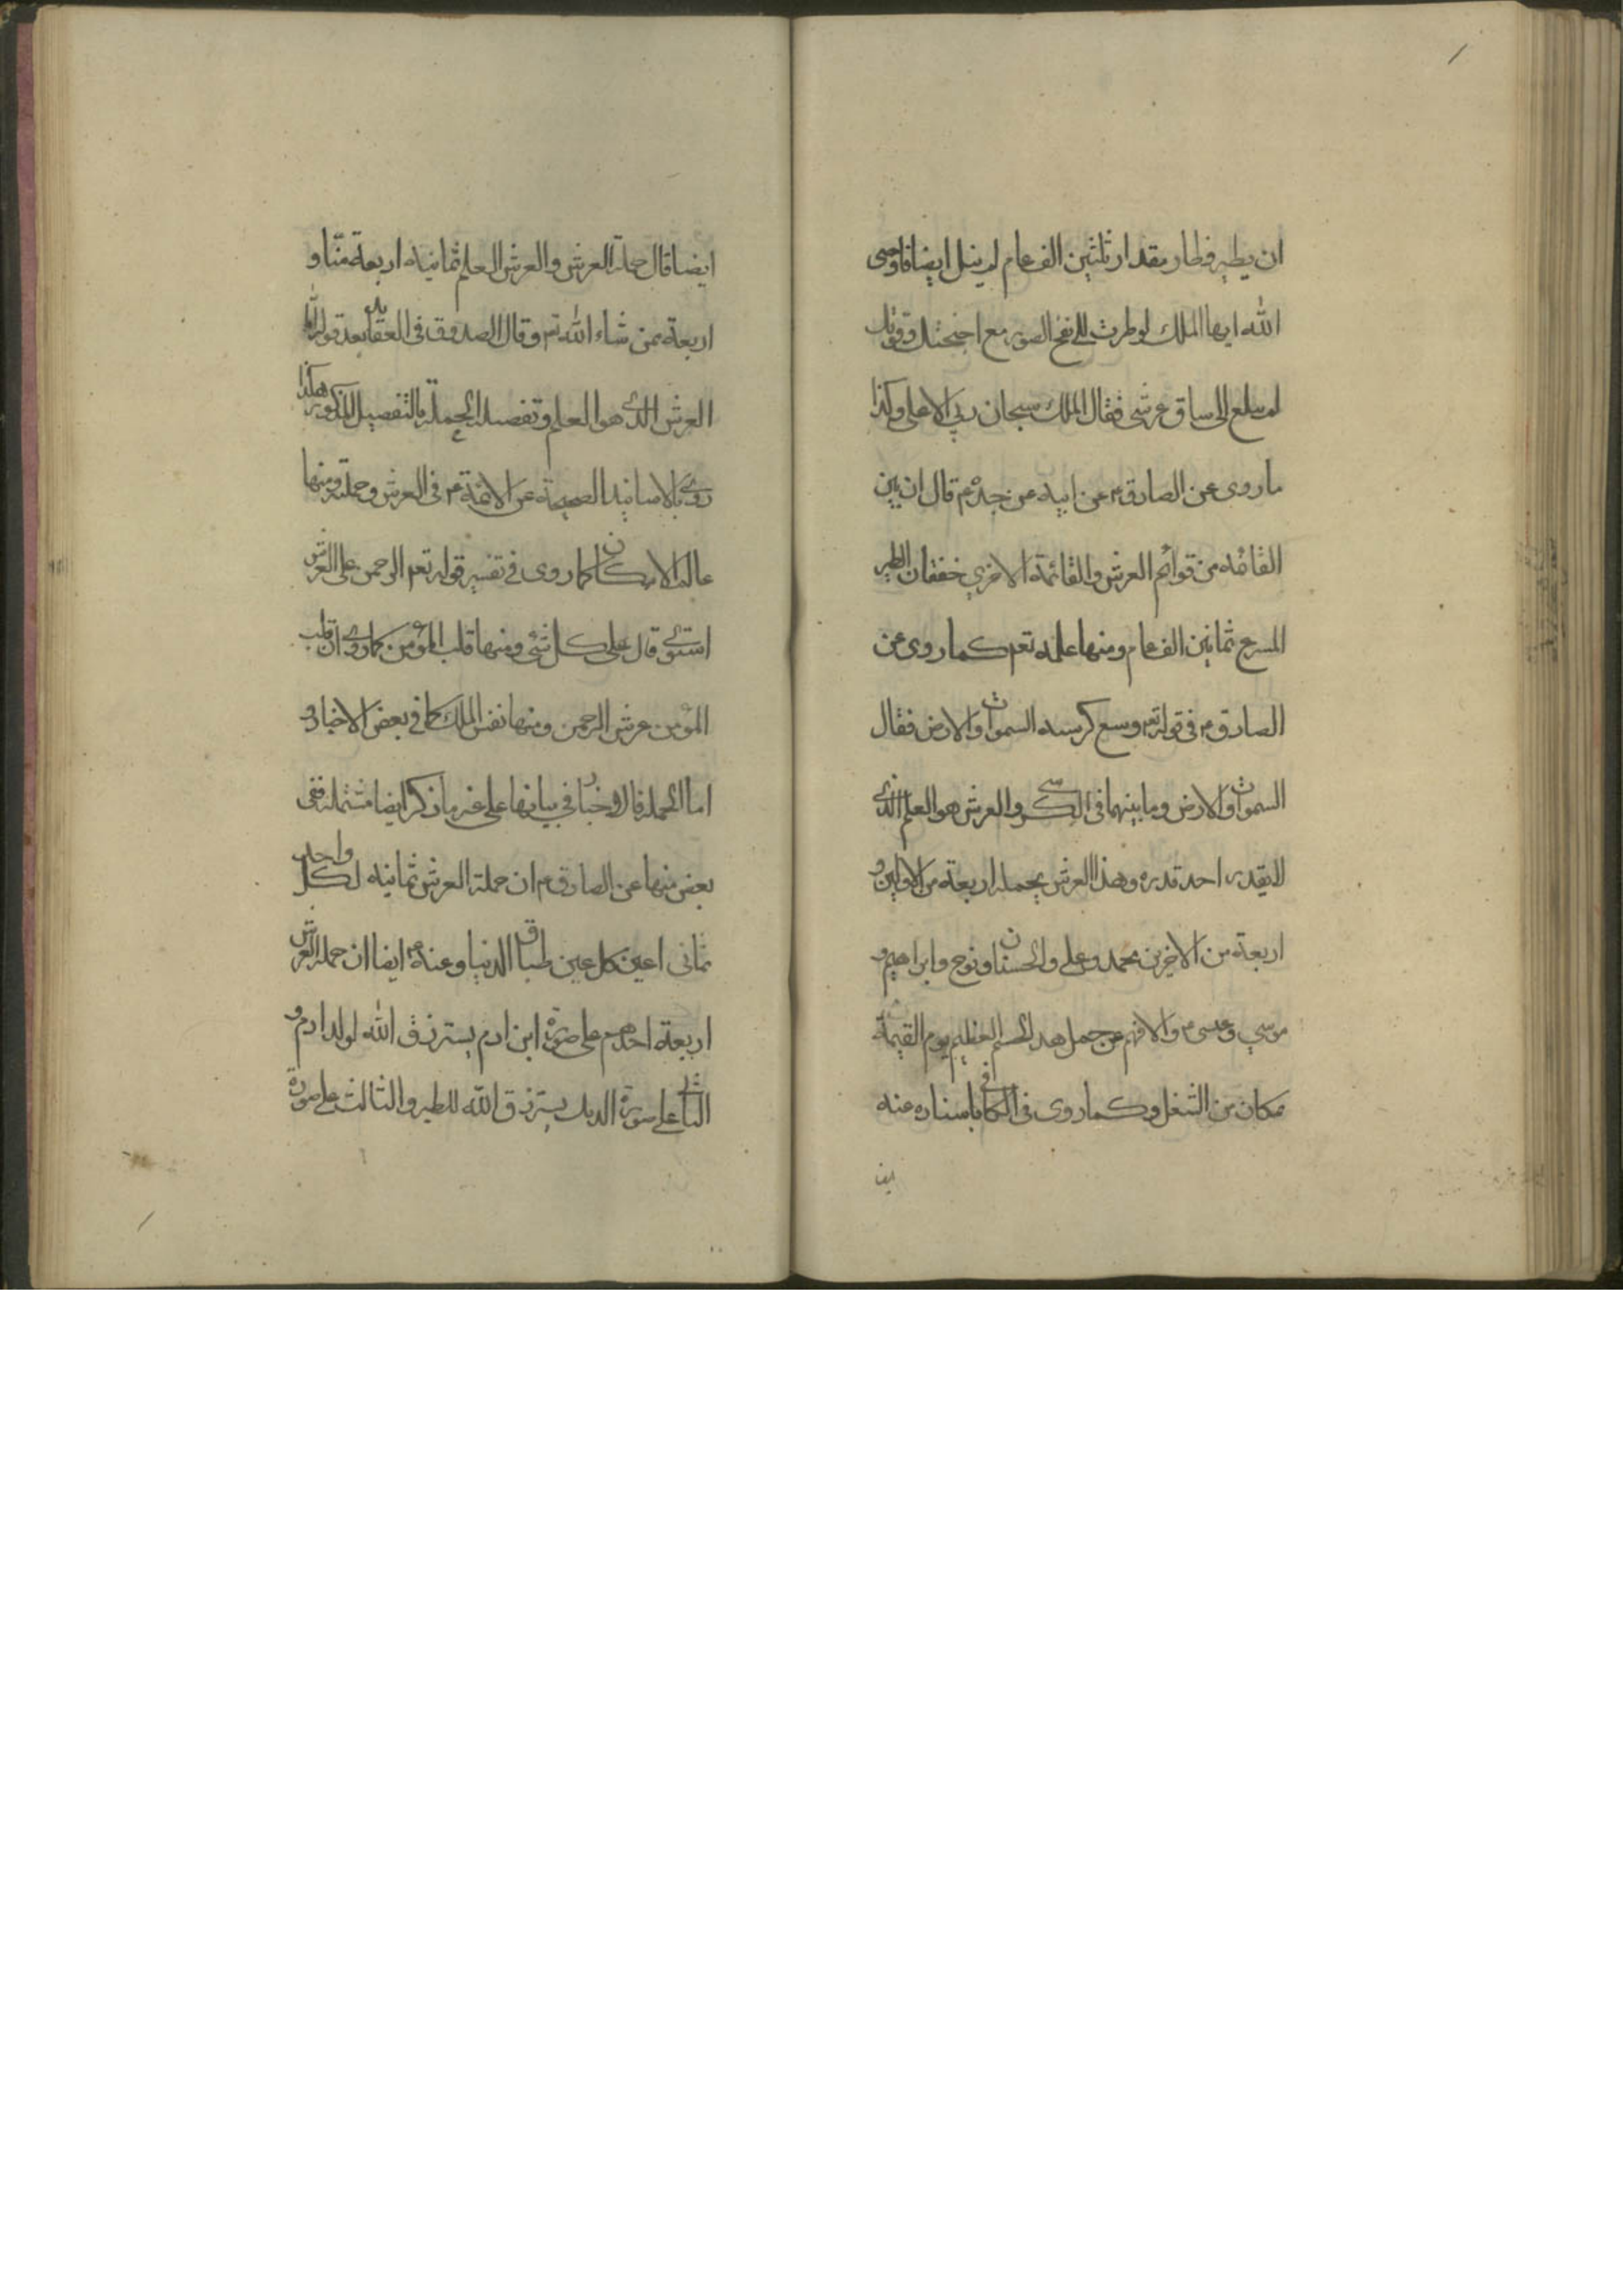 ان يطير فطار مقدار ثلثين الف عام لم ينل ايضا فاوحى
الله ايها الملك لو طرت الى نفخ الصور مع اجنحتك وقوتك
لم تبلغ الى ساق عرشى فقال الملك سبحان ربي الاعلى وكذا
ما روى عن الصادق ع عن ابيه عن جده ع قال ان بين
القائمة من قوائم العرش والقائمة الاخري خفقان الطير
المسرع ثمانين الف عام ومنها علمه تعم كما روى عن
الصادق ع في قوله تع وسع كرسيه السموات والارض فقال
السموات والارض وما بينهما في الكرسي والعرش هو العلم الذي
لا يقدر احد قدره وهذا العرش يحمله اربعة من الاولين و
اربعة من الاخرين محمد وعلي والحسنان ونوح وابراهيم و
موسي وعيسى ع والا فهم عن حمل هذا الجسم العظيم يوم القيمة
بمكان من الشغل وكما روى في الكافي باسناده عنه
ايض
ايضا قال حملة العرش والعرش العلم ثمانية اربعة منا و
اربعة ممن شاء الله تع وقال الصدوق في العقايد بعد قوله اما
العرش الذي هو العلم وتفصيله الحملة بالتفصيل المذكور هكذا
روي بالاسانيد الصحيحة عن الائمة ع في العرش وحملته ومنها
عالم الامكان كما روى في تفسير قوله تعم الرحمن على العرش
استوي قال على كل شئ ومنها قلب المؤمن كما روي ان قلب
المؤمن عرش الرحمن ومنها نفس الملك كما في بعض الاخبار و
اما الحملة فالاخبار في بيانها على غير ما ذكر ايضا مشتملة ففى
بعض منها عن الصادق ع ان حملة العرش ثمانية لكل واحد
ثمانى اعين كل عين طباق الدنيا وعنه ع ايضا ان حملة العرش
اربعة احدهم على صورة ابن ادم يسترزق الله لولد ادم و
الثاني على صورة الديك يسترزق الله للطير والثالث على صورة